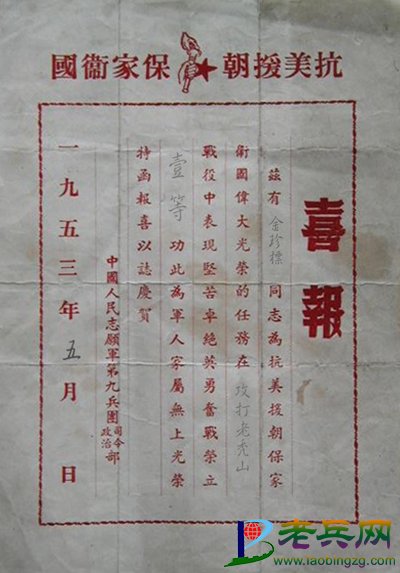 抗美援朝 保家衞國
喜報
茲有金珍標同志為抗美援朝保家
衞國偉大光榮的任務在攻打老禿山
戰役中表現堅苦卓絕英勇奮戰榮立
壹等功此為軍人家屬無上光榮
特函報喜以誌慶賀
中國人民志願軍第九兵團司令政治部
一九五三年五月 日
老兵网
www.laobingzg.com